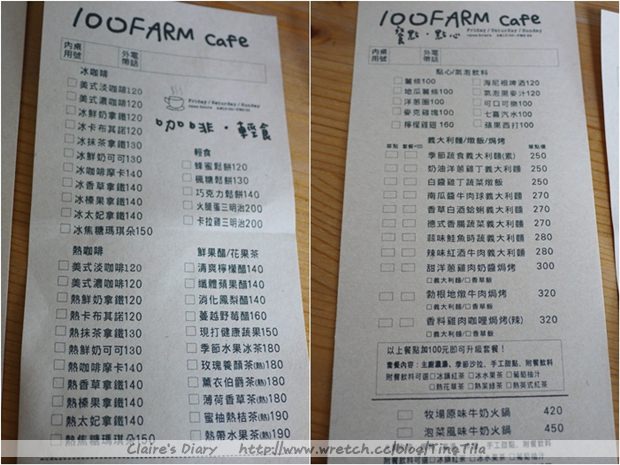 100FARM cafe
內用 桌號
外帶 電話
冰咖啡
美式淡咖啡120
美式濃咖啡120
冰鮮奶拿鐵120
冰卡布其諾120
冰抹茶拿鐵130
冰鮮奶可可130
冰咖啡摩卡140
冰香草拿鐵140
冰榛果拿鐵140
冰太妃拿鐵140
冰焦糖瑪琪朵150
Friday / Saturday / Sunday
咖啡・輕食
輕食
蜂蜜鬆餅120
楓糖鬆餅130
巧克力鬆餅140
火腿蛋三明治200
卡拉雞三明治200
熱咖啡
美式淡咖啡120
美式濃咖啡120
熱鮮奶拿鐵120
熱卡布其諾120
熱抹茶拿鐵130
熱鮮奶可可130
熱咖啡摩卡140
熱香草拿鐵140
熱榛果拿鐵140
熱太妃拿鐵140
熱焦糖瑪琪朵150
鮮果醋/花果茶
清爽檸檬醋140
纖體蘋果醋140
消化鳳梨醋140
蔓越野莓醋160
現打健康蔬果150
季節水果冰茶180
玫瑰養顏茶(熱)180
薰衣伯爵茶(熱)180
薄荷香草茶(熱)180
蜜柚熱桔茶(熱)190
熱帶水果茶(熱)190
100FARM cafe
餐點・點心
Friday / Saturday / Sunday
內用 桌號
外帶 電話
點心/氣泡飲料
薯條100
地瓜薯條100
洋蔥圈100
麥克雞塊100
檸檬雞翅 160
海尼根啤酒120
氣泡黑麥汁120
可口可樂100
七喜汽水100
蘋果西打100
單點 套餐+100 義大利麵/燉飯/焗烤
季節蔬食義大利麵(素) 250
奶油洋蔥丁義大利麵 250
白醬雞丁蔬菜燉飯 250
南瓜醬牛肉球義大利麵 270
香草白酒蛤蜊義大利麵 270
德式香腸蔬菜義大利麵 270
蒜味鮭魚時蔬義大利麵 280
羅勒雞肉天使義大利麵 280
甜洋蔥雞肉奶醬焗烤 300
□義大利麵/□香草飯
勃根地燉牛肉焗烤 320
□義大利麵/□香草飯
香料雞肉咖哩焗烤(辣) 320
□義大利麵/□香草飯
以上餐點加100元即可升級套餐！
套餐內容：主廚濃湯、季節沙拉、手工甜點、附餐飲料
附餐飲料可選□冰鎮紅茶 □冰水果茶 □葡萄柚汁
□熱花草茶 □熱菜綠茶 □熱英式紅茶
牧場原味牛奶火鍋 420
泡菜風味牛奶火鍋 450
Claire's Diary http://www.wretch.cc/blog/TingTila